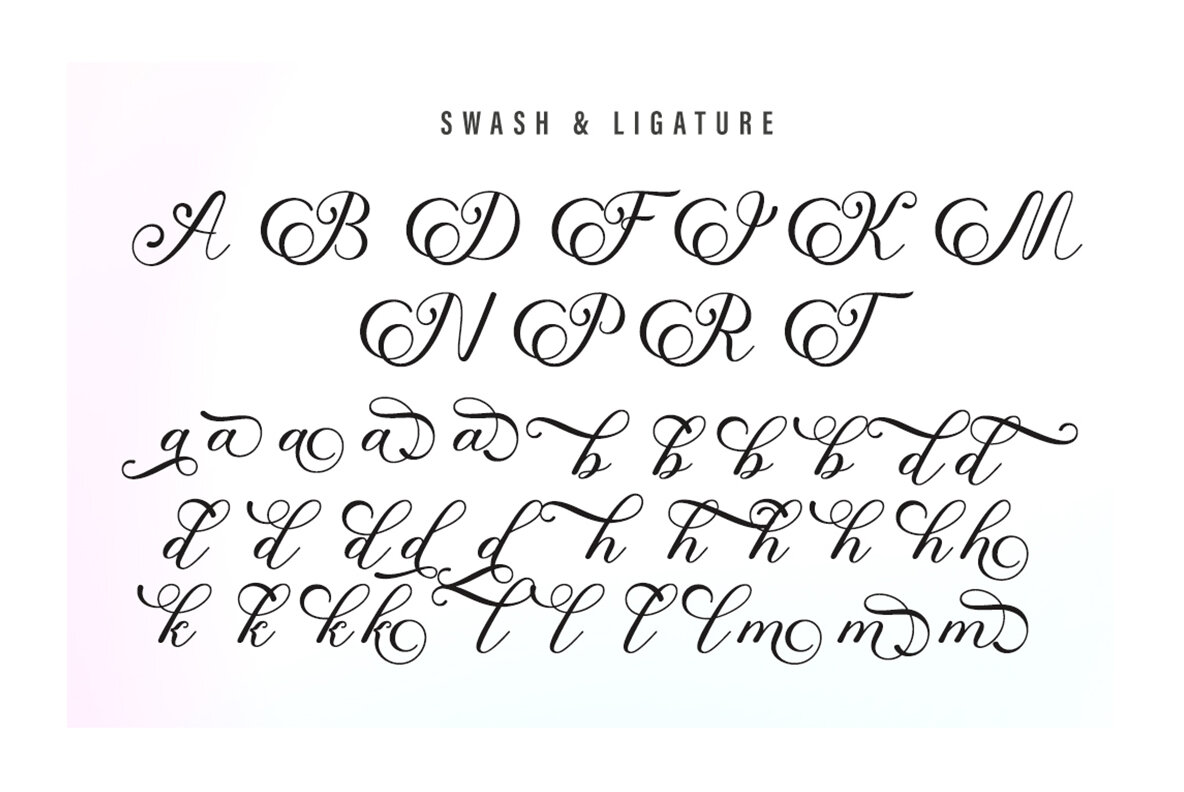 SWASH & LIGATURE
A B D F I K M
N P R T
a a a a a b b b b d d
d d d d d h h h h h h
k k k k l l l l m m m